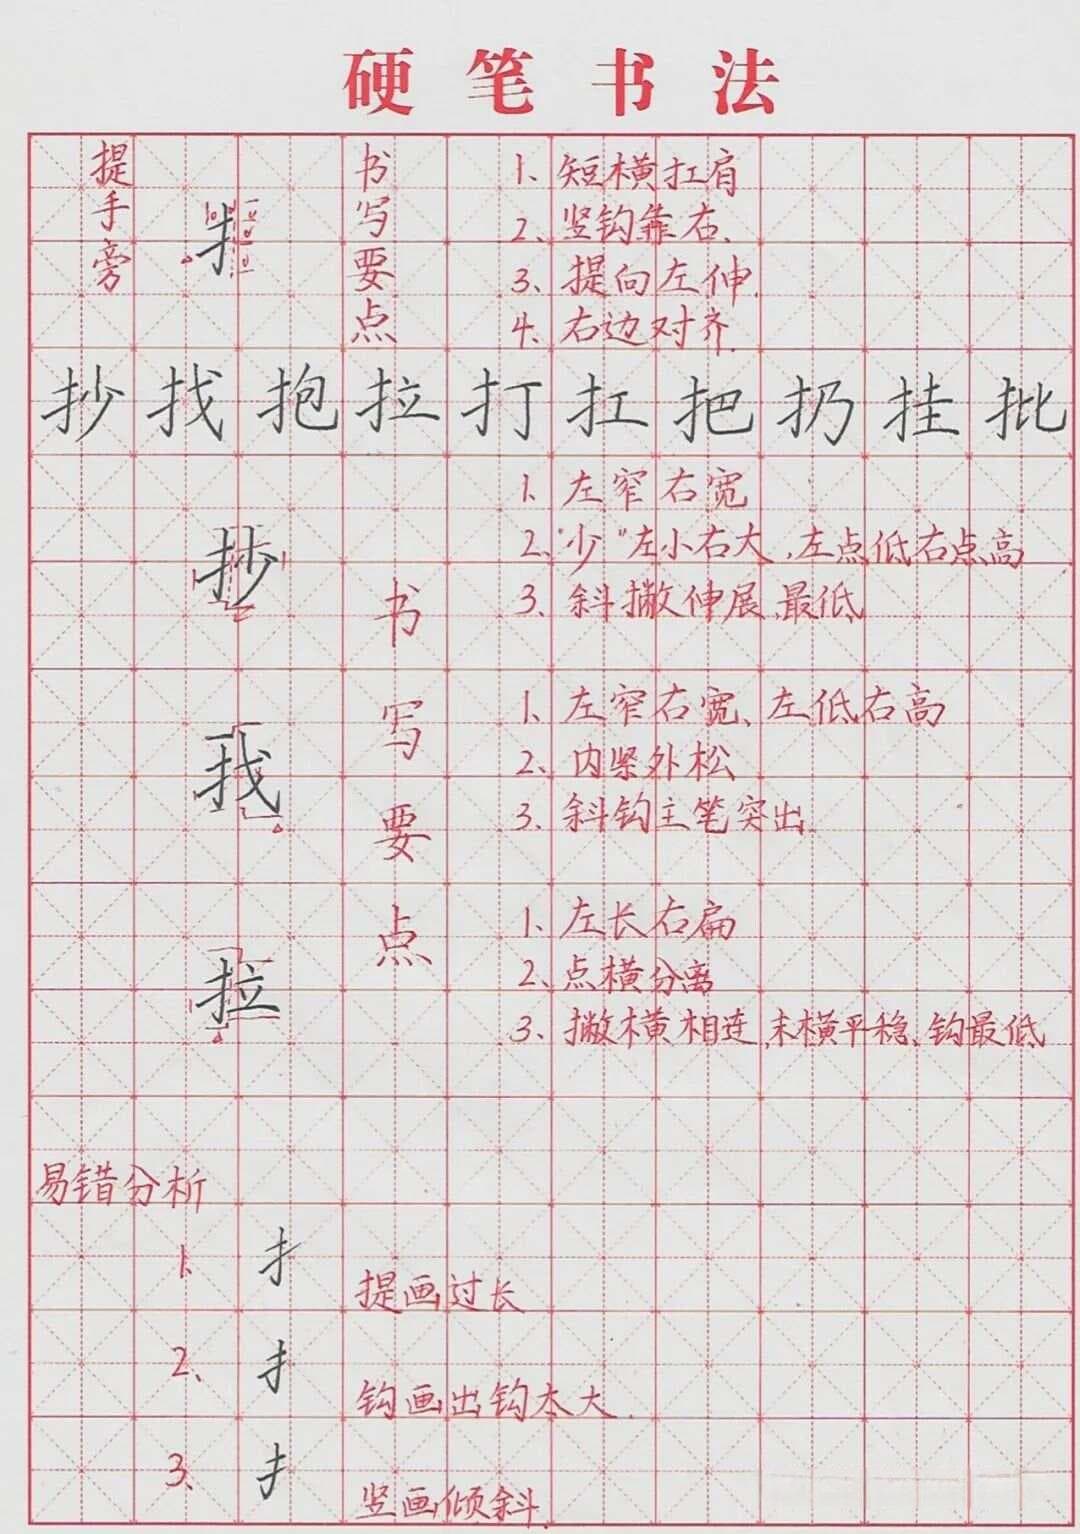 硬笔书法
提手旁
扌
书写要点
1、短横扛肩
2、竖钩靠右、
3、提向左伸.
4、右边对齐.
抄找抱拉打扛把扔挂批
抄
书写要点
1、左窄右宽
2、"少"左小右大,左点低右点高
3、斜撇伸展,最低
找
1、左窄右宽、左低右高
2、内紧外松
3、斜钩主笔突出.
拉
1、左长右扁
2、点横分离
3、撇横相连,末横平稳、钩最低
易错分析
1、扌 提画过长
2、扌 钩画出钩太大.
3、扌 竖画倾斜.